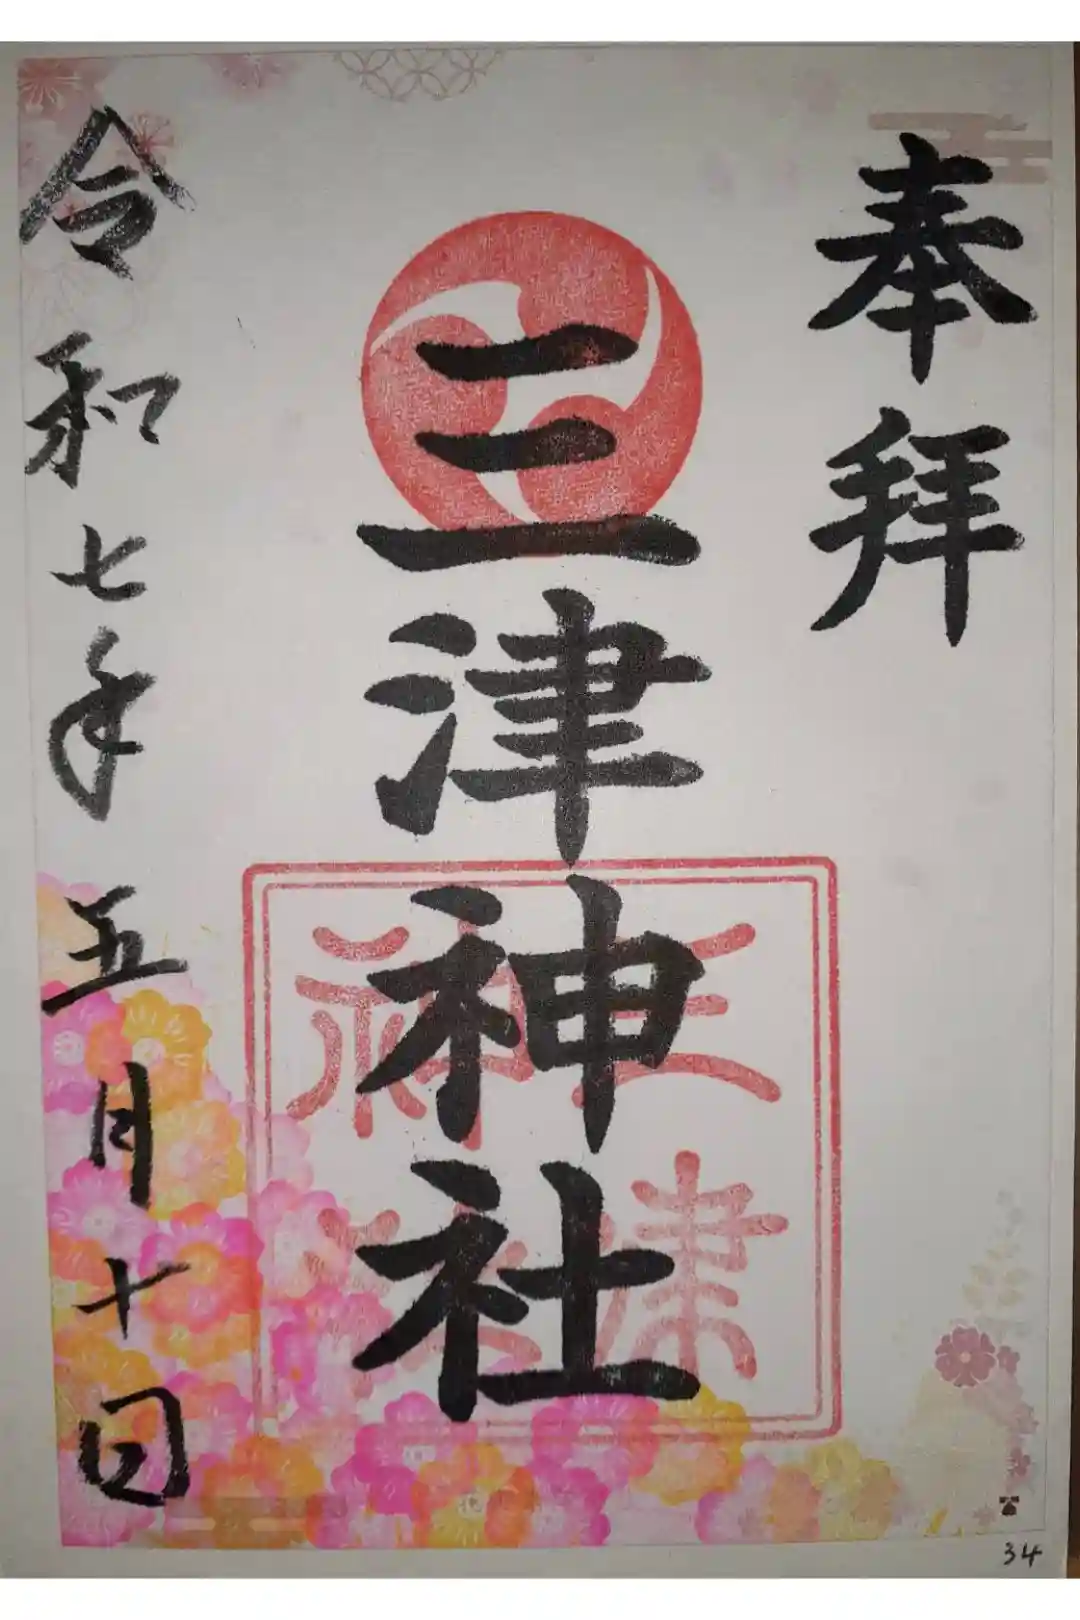 奉拝
三津神社
三津
神社
令和七年五月十日
34